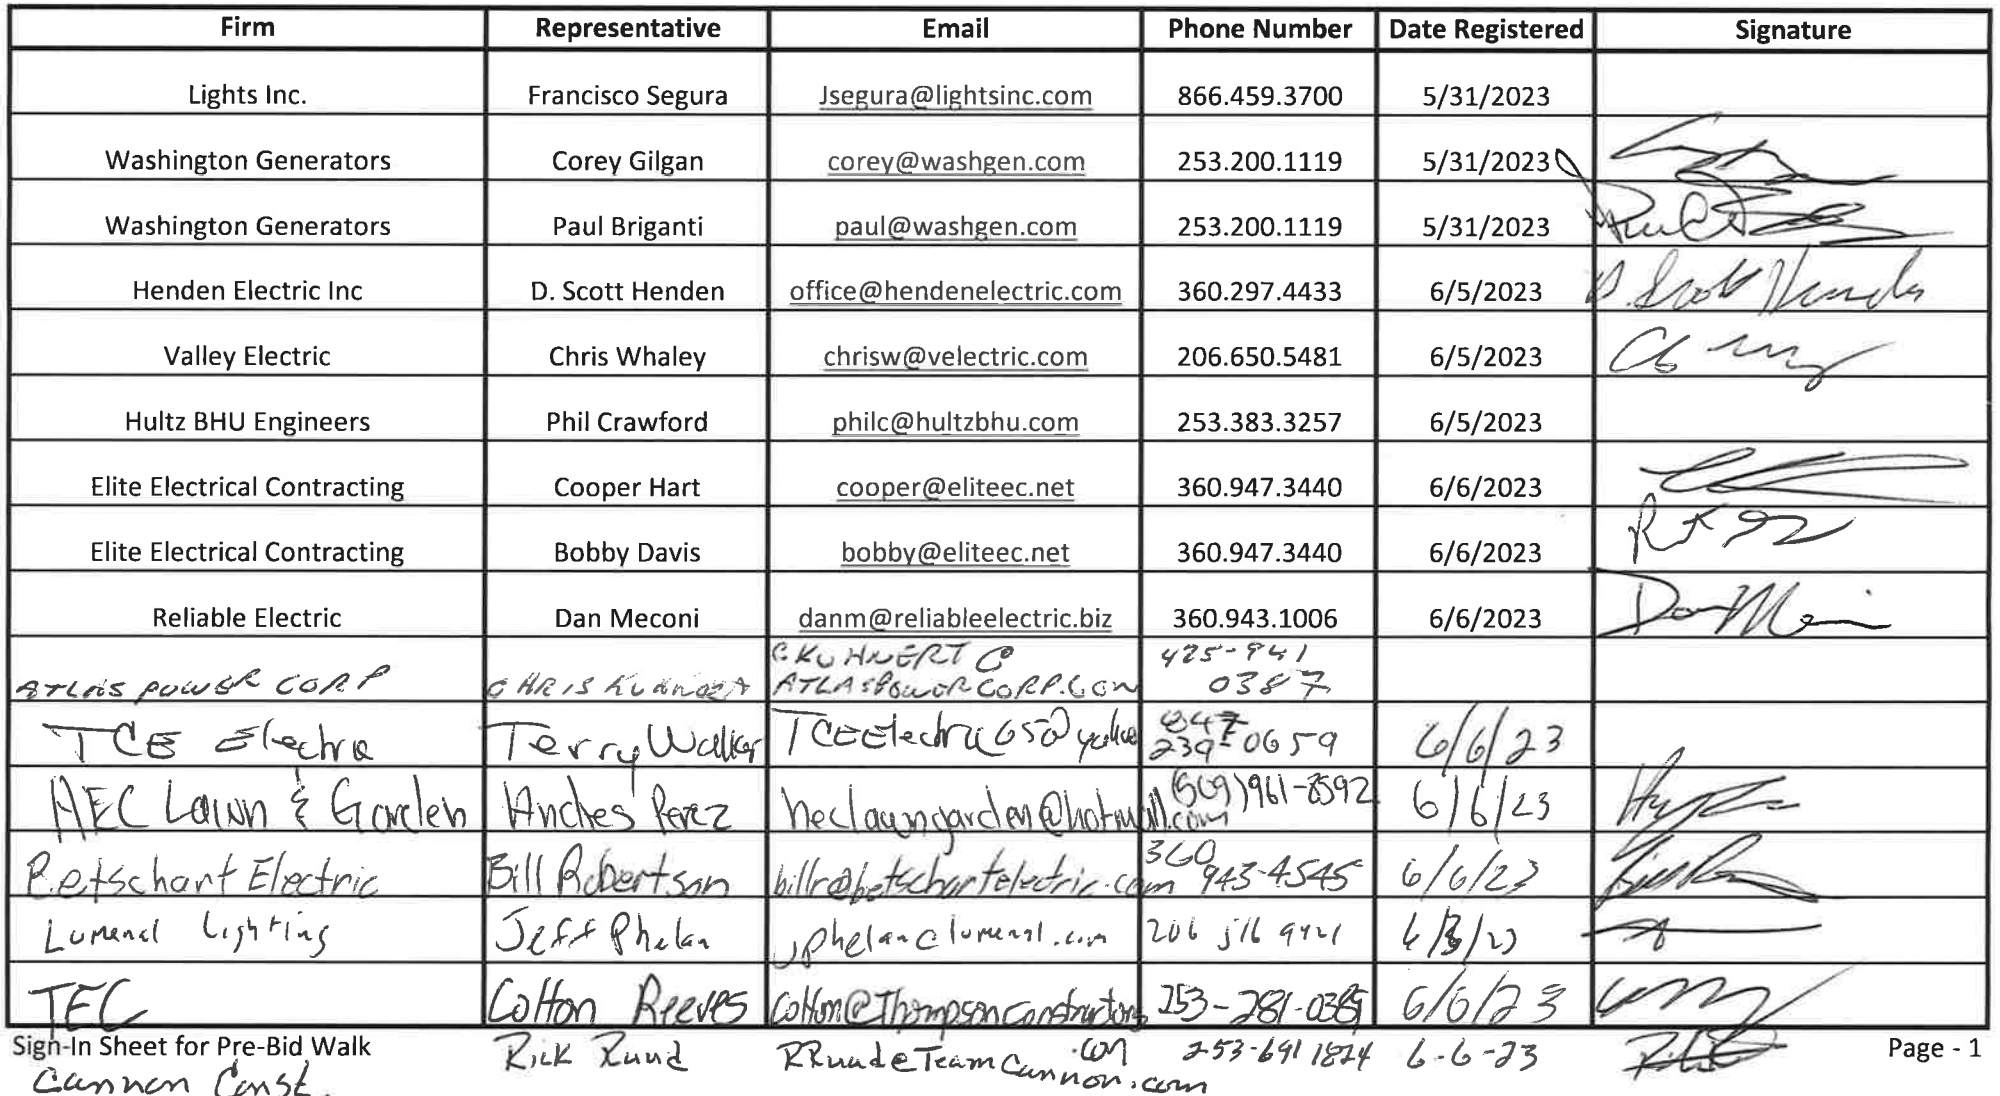 Firm Representative Email Phone Number Date Registered Signature
Lights Inc. Francisco Segura Jsegura@lightsinc.com 866.459.3700 5/31/2023
Washington Generators Corey Gilgan corey@washgen.com 253.200.1119 5/31/2023
Washington Generators Paul Briganti paul@washgen.com 253.200.1119 5/31/2023
Henden Electric Inc D. Scott Henden office@hendenelectric.com 360.297.4433 6/5/2023 D. Scott Henden
Valley Electric Chris Whaley chrisw@velectric.com 206.650.5481 6/5/2023
Hultz BHU Engineers Phil Crawford philc@hultzbhu.com 253.383.3257 6/5/2023
Elite Electrical Contracting Cooper Hart cooper@eliteec.net 360.947.3440 6/6/2023
Elite Electrical Contracting Bobby Davis bobby@eliteec.net 360.947.3440 6/6/2023
Reliable Electric Dan Meconi danm@reliableelectric.biz 360.943.1006 6/6/2023
CKUHNERT@ 425-941
ATLAS POWER CORP CHRIS KUHNERT ATLASPOWERCORP.COM 0387
TCE Electric Terry Walker 239-0659 6/6/23
HEC Lawn & Garden Anches Perez heclawngarden@hotmail.com (509)961-8592 6/6/23
Betschart Electric Bill Robertson billr@betschartelectric.com 360 943-4545 6/6/23
Lumenal Lighting Jeff Phelan jphelan@lumenal.com 206 9421
TEC Colton Reeves Colton@Thompsonconstructors 253-281-0389 6/6/23
.com
Sign-In Sheet for Pre-Bid Walk Page - 1
Cannon Const. Rick Ruud RRuud@TeamCannon.com 253-691 1824 6-6-23